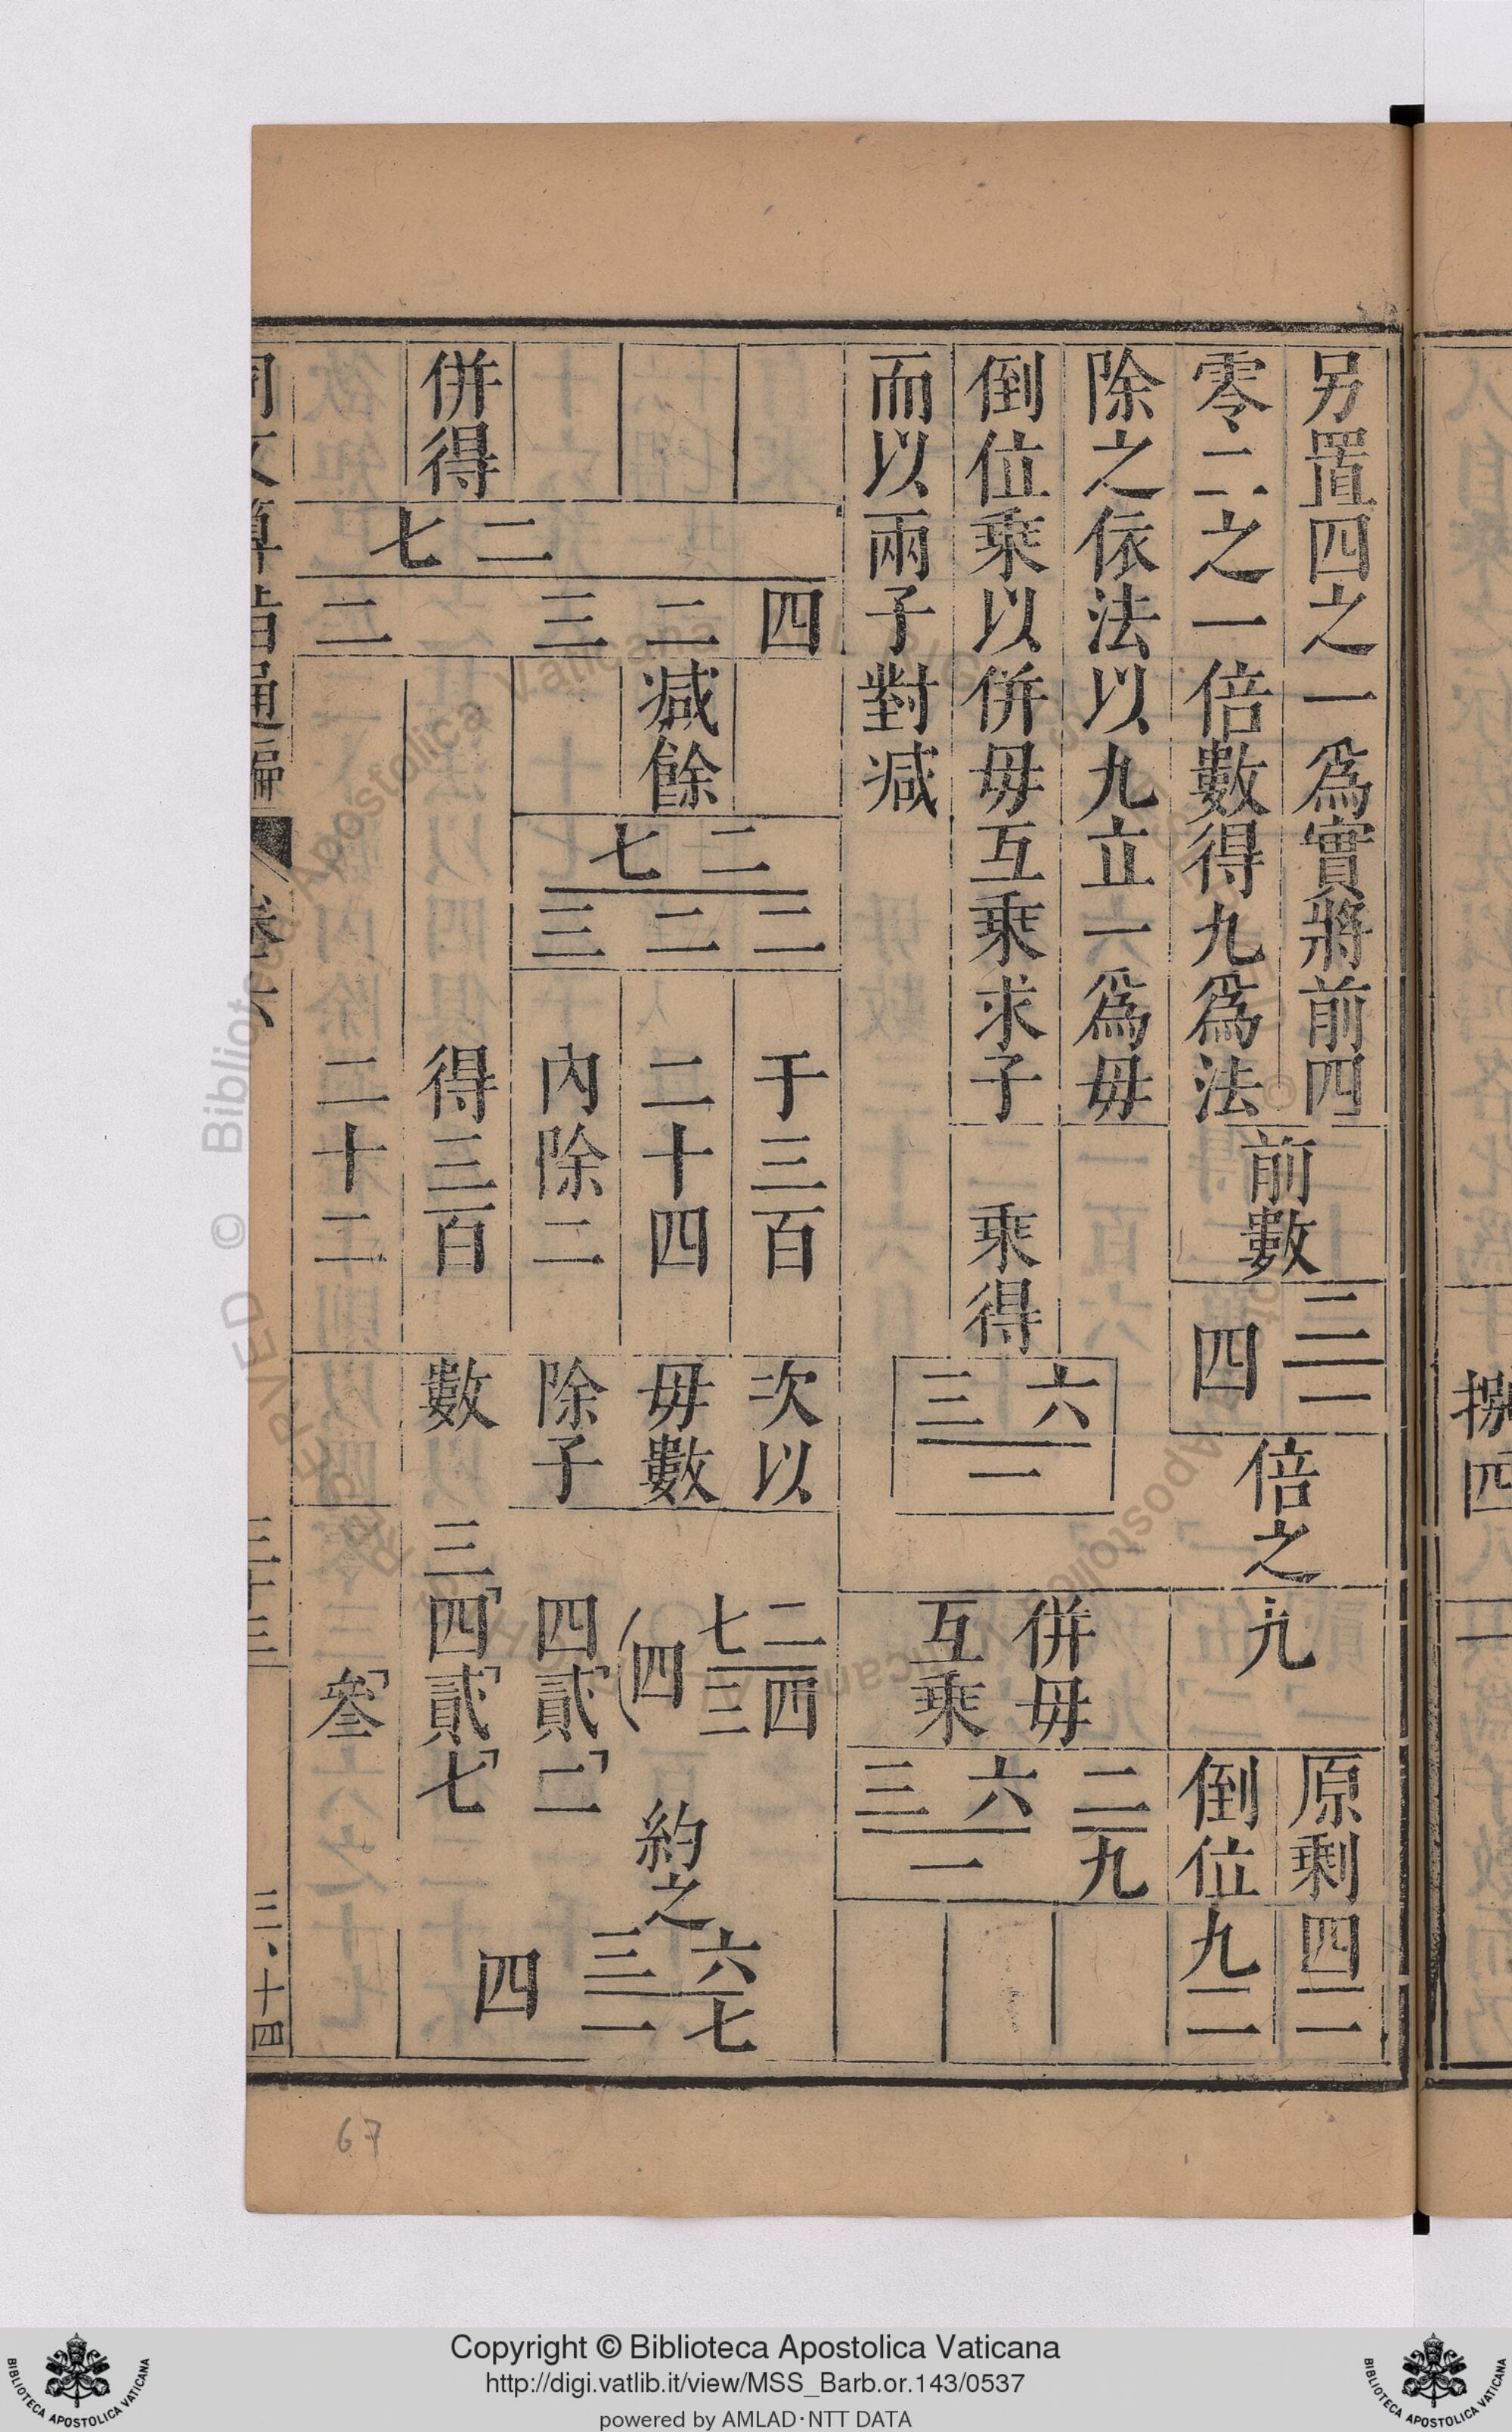 另置四之一爲實將前四
零二之一倍數得九爲法
前數
二一
二
四
倍之
九
原剩
四一
一
倒位
九一
二
除之依法以九立一爲毋
倒位乘以併毋互乘求子
乘得
六三
一
而以兩子對減
併毋
互乘
二九
六三
一
四
二
三
二
二七
減餘
二七
二二三
併得
于三百
二十四
內除二
得三百
二十二
次以
毋數
除子
數
二七
四三
四
四貳二
三四貳七
叄
約之
六七
三一
四
同文算指通編
卷六
三十三
三·十四
捌四
67
Copyright © Biblioteca Apostolica Vaticana
http://digi.vatlib.it/view/MSS_Barb.or.143/0537
powered by AMLAD·NTT DATA
BIBLIOTECA APOSTOLICA VATICANA
BIBLIOTECA APOSTOLICA VATICANA